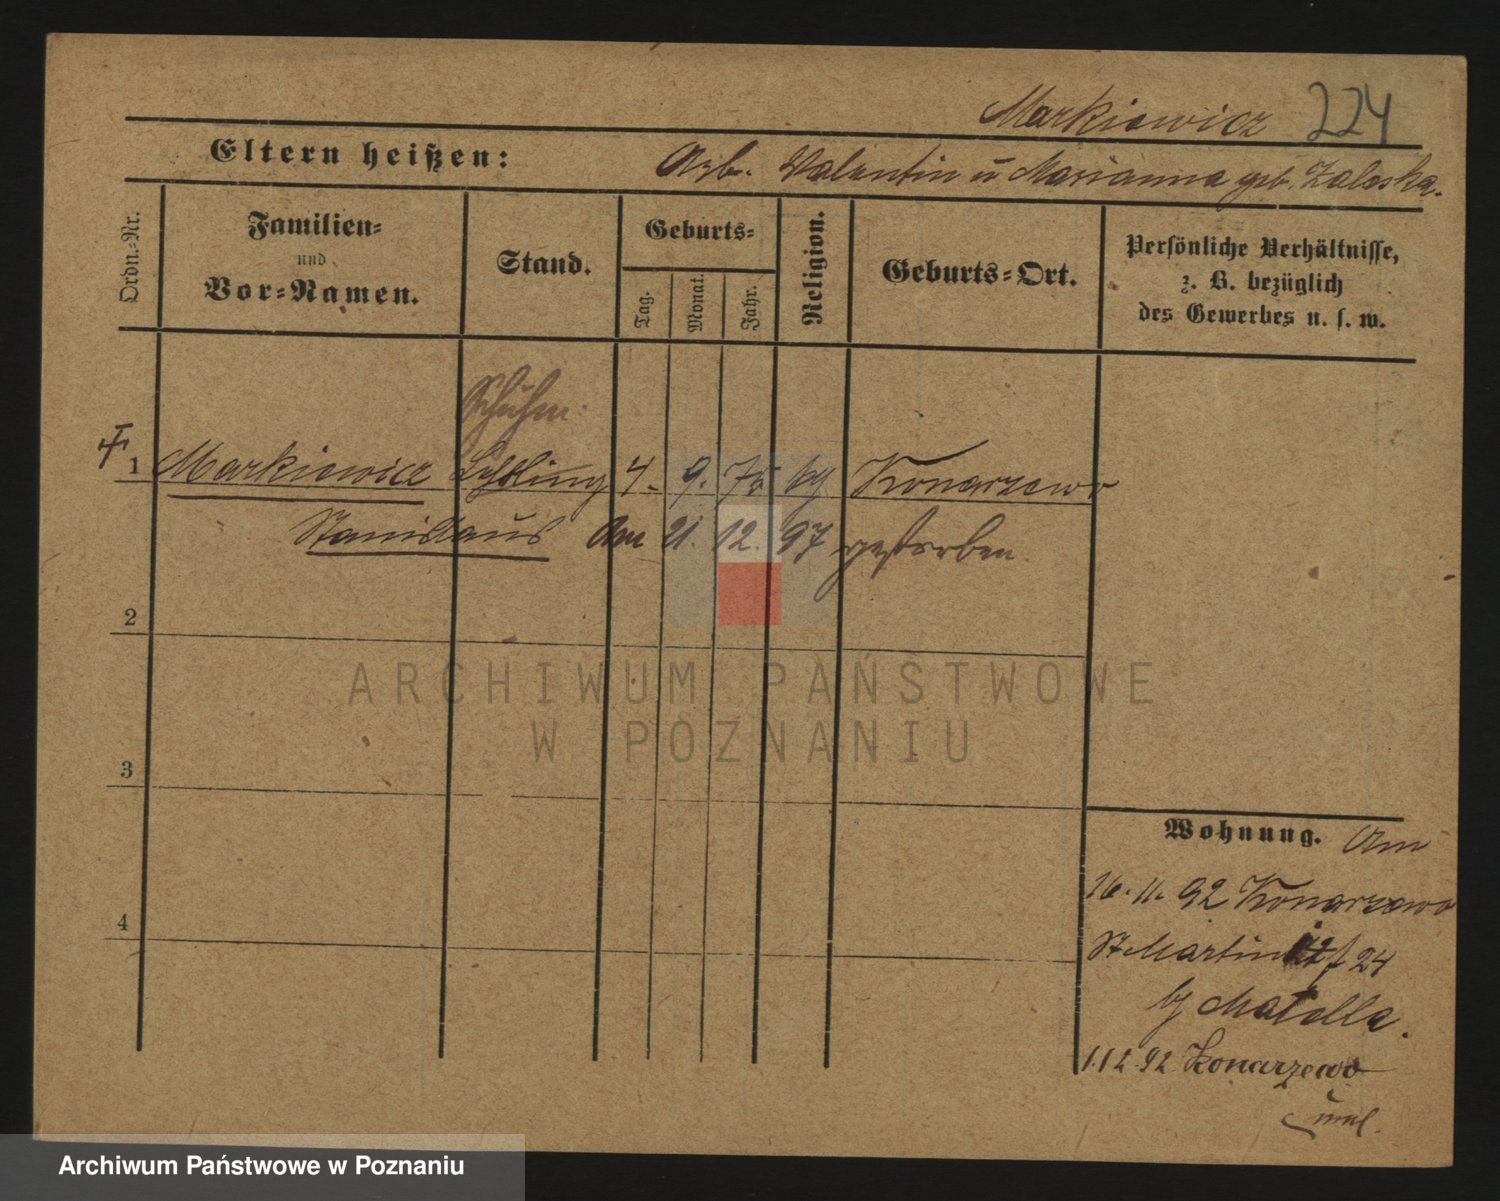 Markiewicz 224
Eltern heißen: Arb. Valentin u Marianna geb. Zaleska.
Ordn.-Nr.
Familien-
und
Vor-Namen.
Stand.
Geburts-
Tag.
Monat.
Jahr.
Religion.
Geburts-Ort.
Persönliche Verhältnisse,
z. B. bezüglich
des Gewerbes u. s. w.
Schuhm.
1 Markiewicz Lehrling 4. 9. 75 kg Konarzewo
Stanislaus Am 21. 12. 97 gestorben.
2
3
4
Wohnung. Am
16. 11. 92 Konarzewo
St Martin 24
by Matella.
1.12.92 Konarzewo
ARCHIWUM PAŃSTWOWE
W POZNANIU
Archiwum Państwowe w Poznaniu